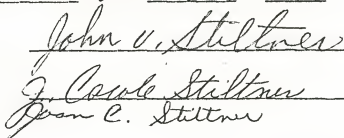 John V. Stiltner
J. Carole Stiltner
Joan C. Stiltner